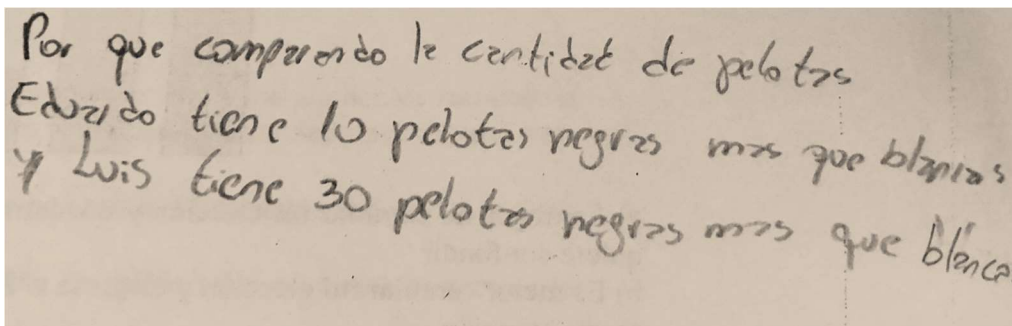 Por que comparendo la cantidat de pelotas
Eduardo tiene 10 pelotas negras mas que blancas
y Luis tiene 30 pelotas negras mas que blanca